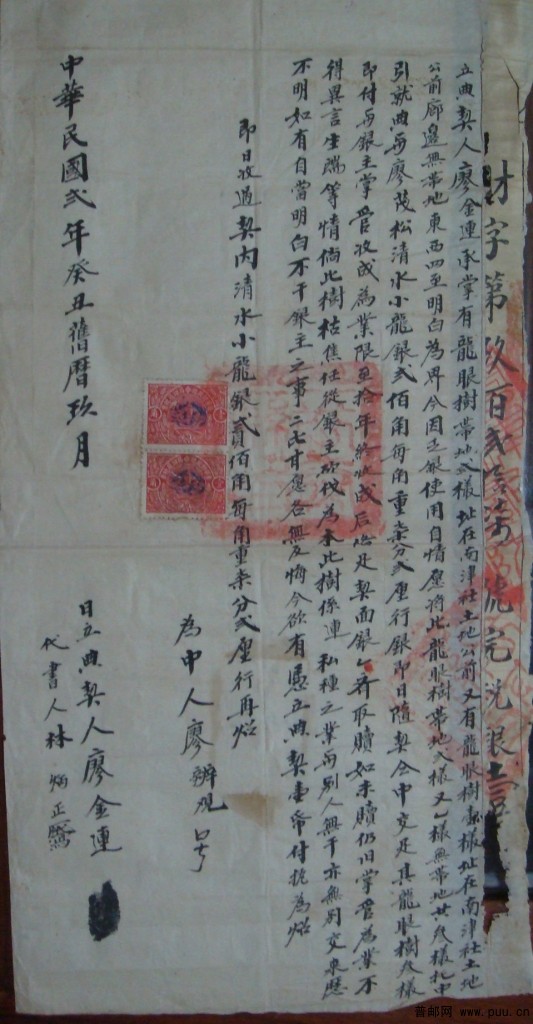 財字第玖百弍 號完稅銀
立典契人廖金連承掌有龍眼樹帶地弍樣址在南津社土地公前又有龍眼樹壹樣址在南津社土地
公前廊邊無帶地東西四至明白為界今因乏銀使用自情愿將此龍眼樹帶地弍樣又乙樣無帶地共叁樣托中
引就典與廖茂松清水小龍銀弍佰角每角重柒分弍厘行銀即日隨契仝中交足其龍眼樹叁樣
即付與銀主掌管收成為業限至拾年終收成后備足契面銀乙齊取贖如未贖仍旧掌管為業不
得異言生端等情倘此樹枯焦任從銀主砍伐為未此樹係連私種之業與別人無干亦無別交來歷
不明如有自當明白不干銀主之事二比甘愿各無反悔今欲有憑立典契壹帋付執為炤
即日收過契內清水小龍銀弍佰角每角重柒分弍厘行再炤
為中人廖辦觀
中華民國弍年癸丑舊曆玖月 日立典契人廖金連
代書人林炳正
普邮网 www.puu.cn